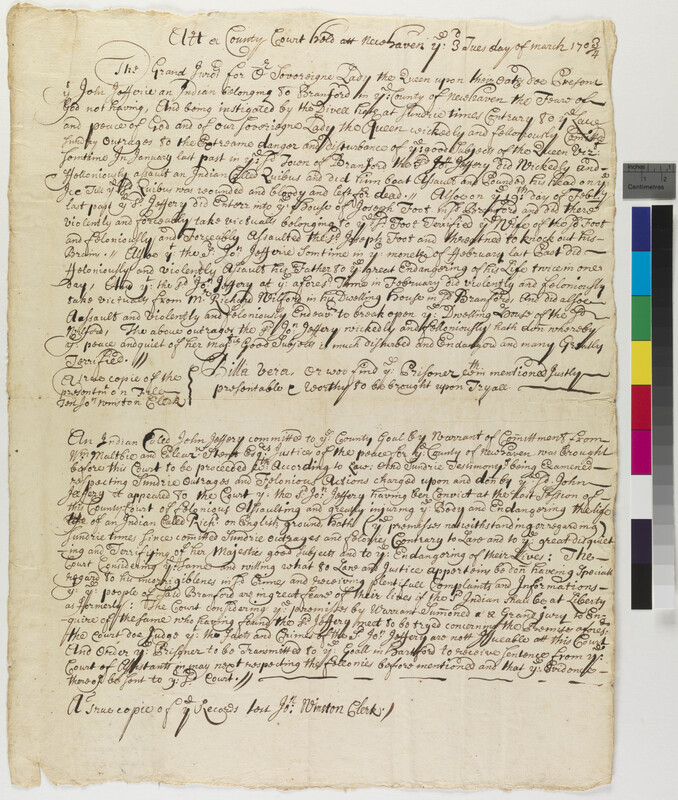 Att a County Court held att Newhaven ye 3d Tuesday of march 1703/4
The Grand Jurors for or Sovereigne Lady the Queen upon their Oaths doe Present
yt John Jefferie an Indian belonging to Branford in ye County of Newhaven the Feare of
God not having, And being instigated by the Divell hath att sundrie times Contrary to ye Laws
and peace of God and of our Sovereigne Lady the Queen wickedly and felloniously Comitted
sundry Outrages to the Extreame danger and disturbance of ye good Subjects of the Queen viz:
Somtime In January last past in ye sd Town of Branford the sd Jno Jeffery did Wickedly And
Felloniously assault an Indian Called Quibus and did him beat Assault and Pounded his head on ye
Ice till ye sd Quibus was wounded and bloody and left for dead. // Also on ye 9th: day of Febry
last past ye sd Jeffery did Enterr into ye House of Joseph Foot in sd Branford and did there
violently and forceably take victuals belonging to ye sd Foot Terrified ye Wife of the sd Foot
and feloniously and Forceably Assaulted the sd Joseph Foot and threatned to knock out his
Brains. // Also yt the sd Jno Jefferie Somtime in ye moneth of February last past did
Feloniously and Violently Assault his Father to ye great Endangering of his Life twice in one
Day; And yt the sd Jno Jeffery at ye aforesd Time in February did violently and feloniously
take victuals from Mr Richard Wilford in his Dwelling house in sd Branford, And did alsoe
Aassault and Violently and feloniously Endeavr to break open ye Dwelling House of the sd
Wilford; The above outrages the sd Jno Jeffery wickedly and Feloniously hath don whereby
ye peace and quiet of her matie Good Subjects is much disturbed and Endangrd and many Greatly
Terrified. //
A true copie of the
presentmt on File
Test Jno Winston Clerk
Billa vera Or wee find ye Prisoner within mentioned Justly
presentable & Worthy to be brought upon Tryall
An Indian Called John Jeffery committed to ye County Goal by Warrant of Comittment from
Wm Maltbie and Eleazr Stent Esqrs Justices of the peace for ye County of Newhaven was brought
before this Court to be proceeded wth According to Law: And Sundrie Testimonys being Examened
respecting Sundrie Outrages and Felonious Actions charged upon and don by ye sd John
Jeffery it appeared to the Court yt the sd Jno: Jeffery having ben Convict at the last Session of
this County Court of Felonious Assaulting and greatly injuring ye Body and Endangering the life
of an Indian Called Rich: on English ground hath ye premises notwithstanding or regarding
Sundrie times Since comitted Sundrie outrages and felonies Contrary to Law and to ye great disquiet
ing and Terrifying of her Majesties good Subjects and to ye Endangering of their Lives: The
Court Considering ye same and willing what to Law and Justice appertains be don haveing Speciall
regard to his incorrigiblenes in sd Crimes and receiving plentifull Complaints and Informations
yt ye people of said Branford are in great feare of their lives if the sd Indian shall be at Liberty
as formerly: The Court considering ye premises by Warrant Sumoned a Grand Jury to En-
quire of the same who having found the sd Jeffery meet to be tryed concerning the Premises aforesd
the Court doe Judge yt the facts and Crimes of the sd Jno: Jeffery are nott Issueable att this Court
And Order ye Prisoner to be Transmitted to ye Goall in Hartford to receive Sentence from ye
Court of Assistants in may next respecting the felonies before mentioned and that ye Evidence
thereof be sent to ye sd Court. //
A True copie of ye Records test Jno: Winston Clerk. //
Inches
1
2
Centimetres